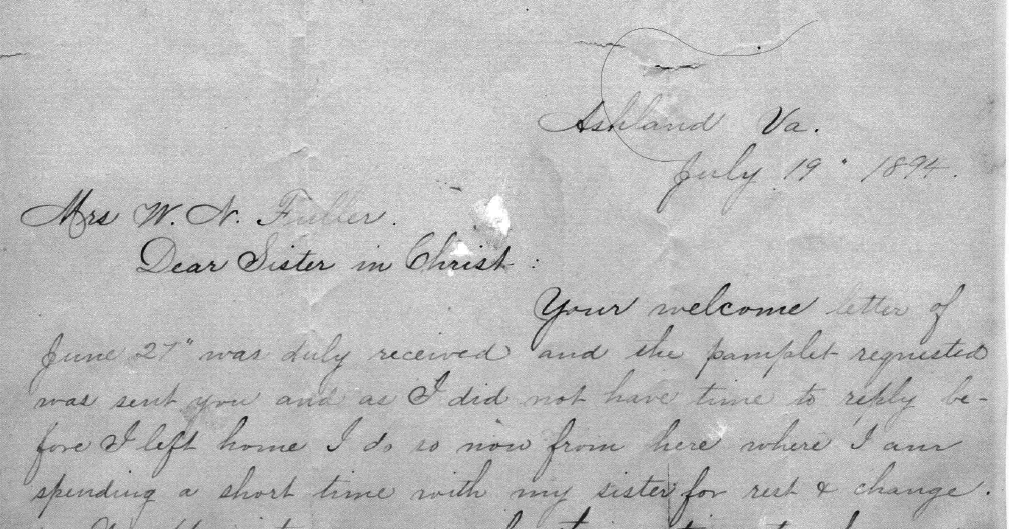 Ashland Va.
July 19" 1894.
Mrs W. N. Fuller.
Dear Sister in Christ:
Your welcome letter of
June 27" was duly received and the pamplet requested
was sent you and as I did not have time to reply be-
fore I left home I do so now from here where I am
spending a short time with my sister for rest & change.